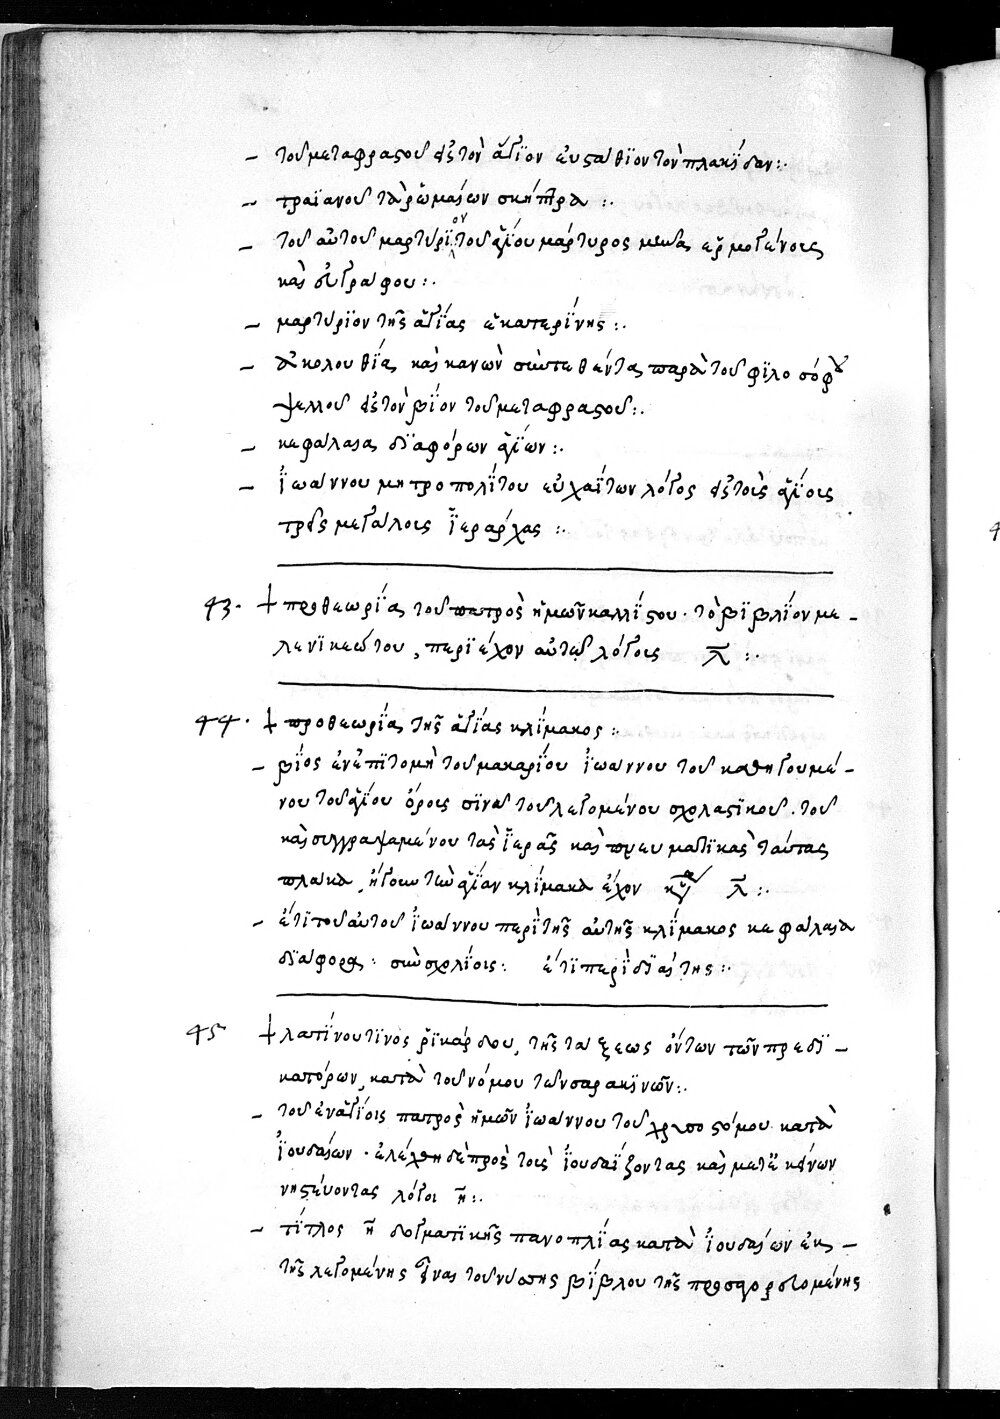 – τοῦ μεταφραστοῦ εἰς τὸν ἅγϊον εὐστάθϊον τὸν πλακΐδαν:·
– τραϊανοῦ τὰ ῥωμαίων σκῆπτρα :·
– τοῦ αὐτοῦ μαρτύρϊον τοῦ ἁγΐου μάρτυρος μηνᾶ ἑρμογένους
καὶ εὐγράφου:·
– μαρτύρϊον τῆς ἁγΐας ἐκατερΐνης :·
– ἀκολουθΐα καὶ κανὼν συντεθέντα παρὰ τοῦ φϊλοσόφου
ψελλοῦ εἰς τὸν βΐον τοῦ μεταφραστοῦ:·
– κεφάλαια δϊαφόρων ἁγΐων:·
– ϊωάννου μητροπολΐτου εὐχαΐτων λόγος εἰς τοὺς ἁγΐους
τρεῖς μεγάλους ϊεράρχας :·
43· + προθεωρΐα τοῦ πατρὸς ἡμῶν καλλΐστου · τὸ βϊβλΐον με–
λενϊκεώτου, περϊέχον αὐτοῦ λόγους λ :·
44· + προθεωρΐα τῆς ἁγΐας κλΐμακος :·
– βΐος ἐν ἐπϊτομῆ τοῦ μακαρΐου ϊωάννου τοῦ καθηγουμέ–
νου τοῦ ἁγΐου ὄρους σϊνᾶ τοῦ λεγομένου σχολαστϊκοῦ · τοῦ
καὶ συγγραψαμένου τὰς ϊερὰς καὶ πνευματϊκὰς ταύτας
πλάκα, ἤγουν τὴν ἁγΐαν κλΐμακα ἔχον λ :·
– ἔτϊ τοῦ αὐτοῦ ϊωάννου περὶ τῆς αὐτῆς κλΐμακος κεφάλαια
δϊάφορα · σὺν σχολΐοις · ἔτϊ περὶ δϊαίτης :·
45 + λατΐνου τϊνὸς ῥϊκάρδου, τῆς τάξεως ὄντων τῶν πρεδϊ–
κατόρων, κατὰ τοῦ νόμου τῶν σαρακϊνῶν:·
– τοῦ ἐν ἁγΐοις πατρὸς ἡμῶν ϊωάννου τοῦ χρυσοστόμου κατὰ
ϊουδαίων · ἐλέχθη δὲ πρὸς τοὺς ϊουδαΐζοντας καὶ μετ' ἐκείνων
νηστεύοντας λόγοι η :·
– τΐτλος η δογματϊκῆς πανοπλΐας κατὰ ϊουδαίων ἐκ –
τῆς λεγομένης βΐβλου τῆς προσαγορευομένης